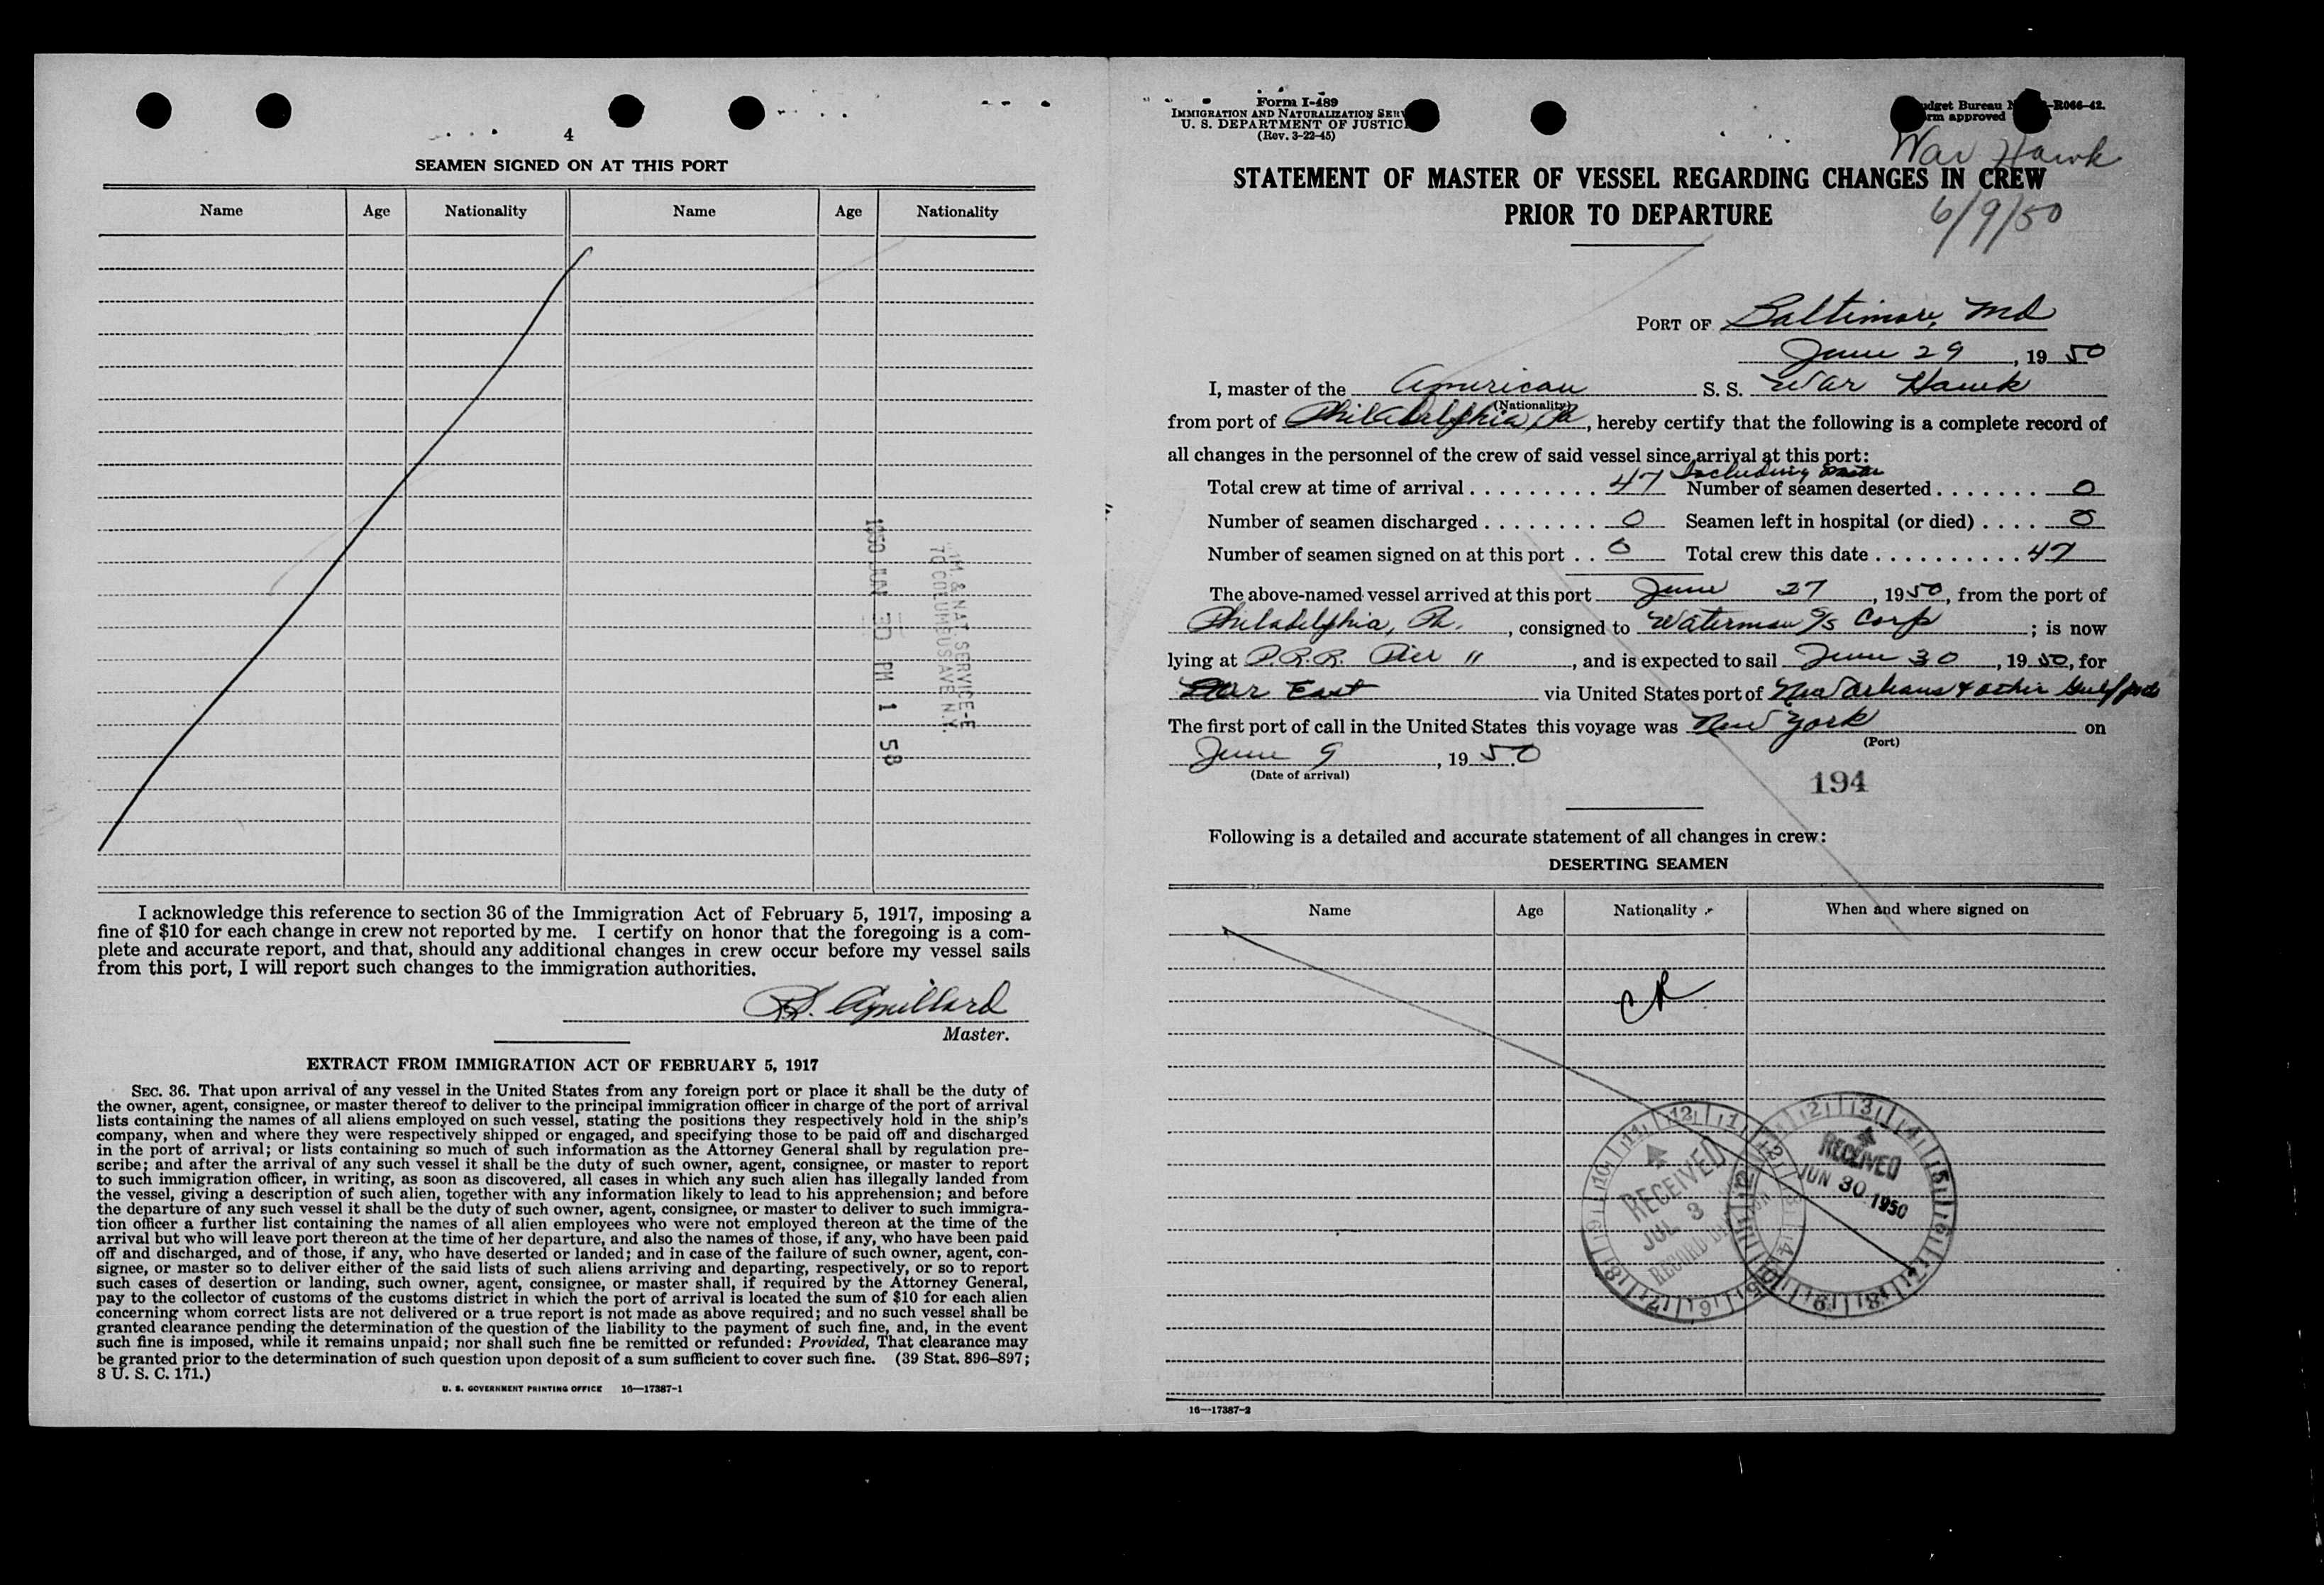 4
SEAMEN SIGNED ON AT THIS PORT
Name Age Nationality Name Age Nationality
1950 JUN 30 PM 1 58
IMM & NAT. SERVICE-E
70 COLUMBUS AVE N.Y.
I acknowledge this reference to section 36 of the Immigration Act of February 5, 1917, imposing a
fine of $10 for each change in crew not reported by me. I certify on honor that the foregoing is a com-
plete and accurate report, and that, should any additional changes in crew occur before my vessel sails
from this port, I will report such changes to the immigration authorities.
Master.
EXTRACT FROM IMMIGRATION ACT OF FEBRUARY 5, 1917
SEC. 36. That upon arrival of any vessel in the United States from any foreign port or place it shall be the duty of
the owner, agent, consignee, or master thereof to deliver to the principal immigration officer in charge of the port of arrival
lists containing the names of all aliens employed on such vessel, stating the positions they respectively hold in the ship's
company, when and where they were respectively shipped or engaged, and specifying those to be paid off and discharged
in the port of arrival; or lists containing so much of such information as the Attorney General shall by regulation pre-
scribe; and after the arrival of any such vessel it shall be the duty of such owner, agent, consignee, or master to report
to such immigration officer, in writing, as soon as discovered, all cases in which any such alien has illegally landed from
the vessel, giving a description of such alien, together with any information likely to lead to his apprehension; and before
the departure of any such vessel it shall be the duty of such owner, agent, consignee, or master to deliver to such immigra-
tion officer a further list containing the names of all alien employees who were not employed thereon at the time of the
arrival but who will leave port thereon at the time of her departure, and also the names of those, if any, who have been paid
off and discharged, and of those, if any, who have deserted or landed; and in case of the failure of such owner, agent, con-
signee, or master so to deliver either of the said lists of such aliens arriving and departing, respectively, or so to report
such cases of desertion or landing, such owner, agent, consignee, or master shall, if required by the Attorney General,
pay to the collector of customs of the customs district in which the port of arrival is located the sum of $10 for each alien
concerning whom correct lists are not delivered or a true report is not made as above required; and no such vessel shall be
granted clearance pending the determination of the question of the liability to the payment of such fine, and, in the event
such fine is imposed, while it remains unpaid; nor shall such fine be remitted or refunded: Provided, That clearance may
be granted prior to the determination of such question upon deposit of a sum sufficient to cover such fine. (39 Stat. 896–897;
8 U. S. C. 171.)
U. S. GOVERNMENT PRINTING OFFICE 16—17387-1
Form I-489
IMMIGRATION AND NATURALIZATION SERV
U. S. DEPARTMENT OF JUSTIC
(Rev. 3-22-45)
udget Bureau N -R066-42.
rm approved
War Hawk
STATEMENT OF MASTER OF VESSEL REGARDING CHANGES IN CREW
PRIOR TO DEPARTURE
6/9/50
PORT OF Baltimore, Md
June 29, 19 50
I, master of the American S. S. War Hawk
(Nationality)
from port of Philadelphia, Pa, hereby certify that the following is a complete record of
all changes in the personnel of the crew of said vessel since arrival at this port:
Including
Total crew at time of arrival . . . . . . . . . 47 Number of seamen deserted . . . . . . . 0
Number of seamen discharged . . . . . . . . 0 Seamen left in hospital (or died) . . . . 0
Number of seamen signed on at this port . . 0 Total crew this date . . . . . . . . . . 47
The above-named vessel arrived at this port June 27, 1950, from the port of
Philadelphia, Pa., consigned to Waterman S/S Corp; is now
lying at P.R.R. Pier 11, and is expected to sail June 30, 19 50, for
Far East via United States port of New Orleans & other Gulf ports
The first port of call in the United States this voyage was New York on
(Port)
June 9, 19 50
(Date of arrival)
194
Following is a detailed and accurate statement of all changes in crew:
DESERTING SEAMEN
Name Age Nationality When and where signed on
RECEIVED
JUL 3
RECEIVED
JUN 30 1950
16—17387-2